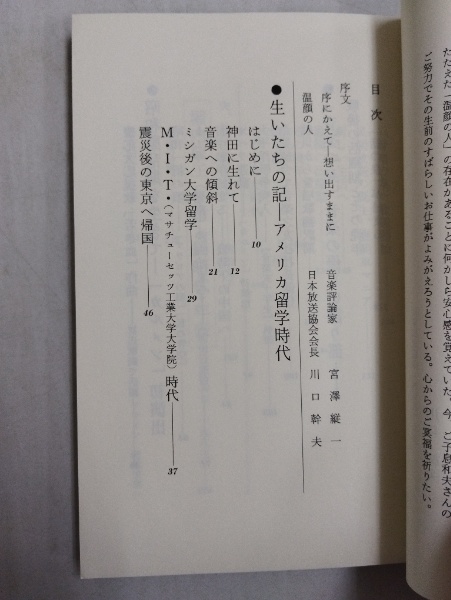 たたえた「温顔の人」の存在があることは何かしら安心感を覚えていた。今、ご子息和夫さんの
ご努力でその生前のすばらしいお仕事がよみがえろうとしている。心からのご冥福を祈りたい。
目次
序文
序にかえて―想い出すままに 音楽評論家 宮澤縦一
温顔の人 日本放送協会会長 川口幹夫
●生いたちの記―アメリカ留学時代
はじめに―10
神田に生れて―12
音楽への傾斜―21
ミシガン大学留学―29
M・I・T・(マサチューセッツ工業大学大学院)時代―37
震災後の東京へ帰国―46